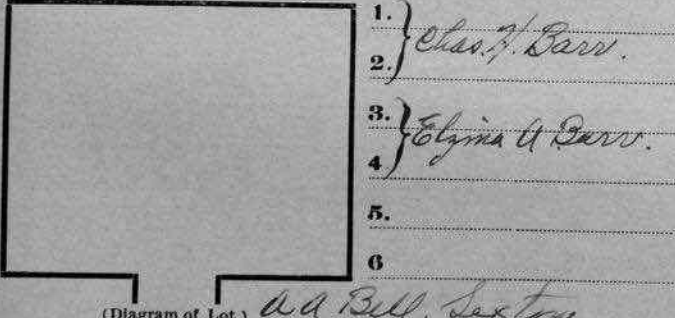 1.
Chas. H. Barr.
2.
3.
Elzina A Barr.
4
5.
6
(Diagram of Lot.) A A Bell, Sexton